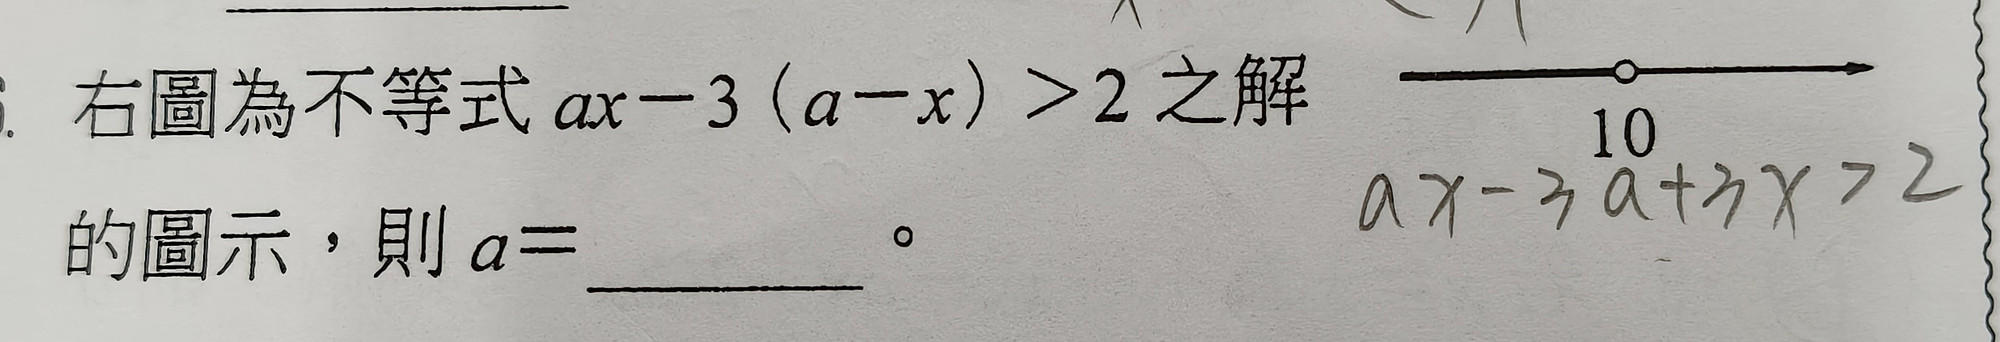 右圖為不等式 ax－3（a－x）＞2 之解
的圖示，則 a＝＿＿＿＿。
10
ax-3a+3x>2